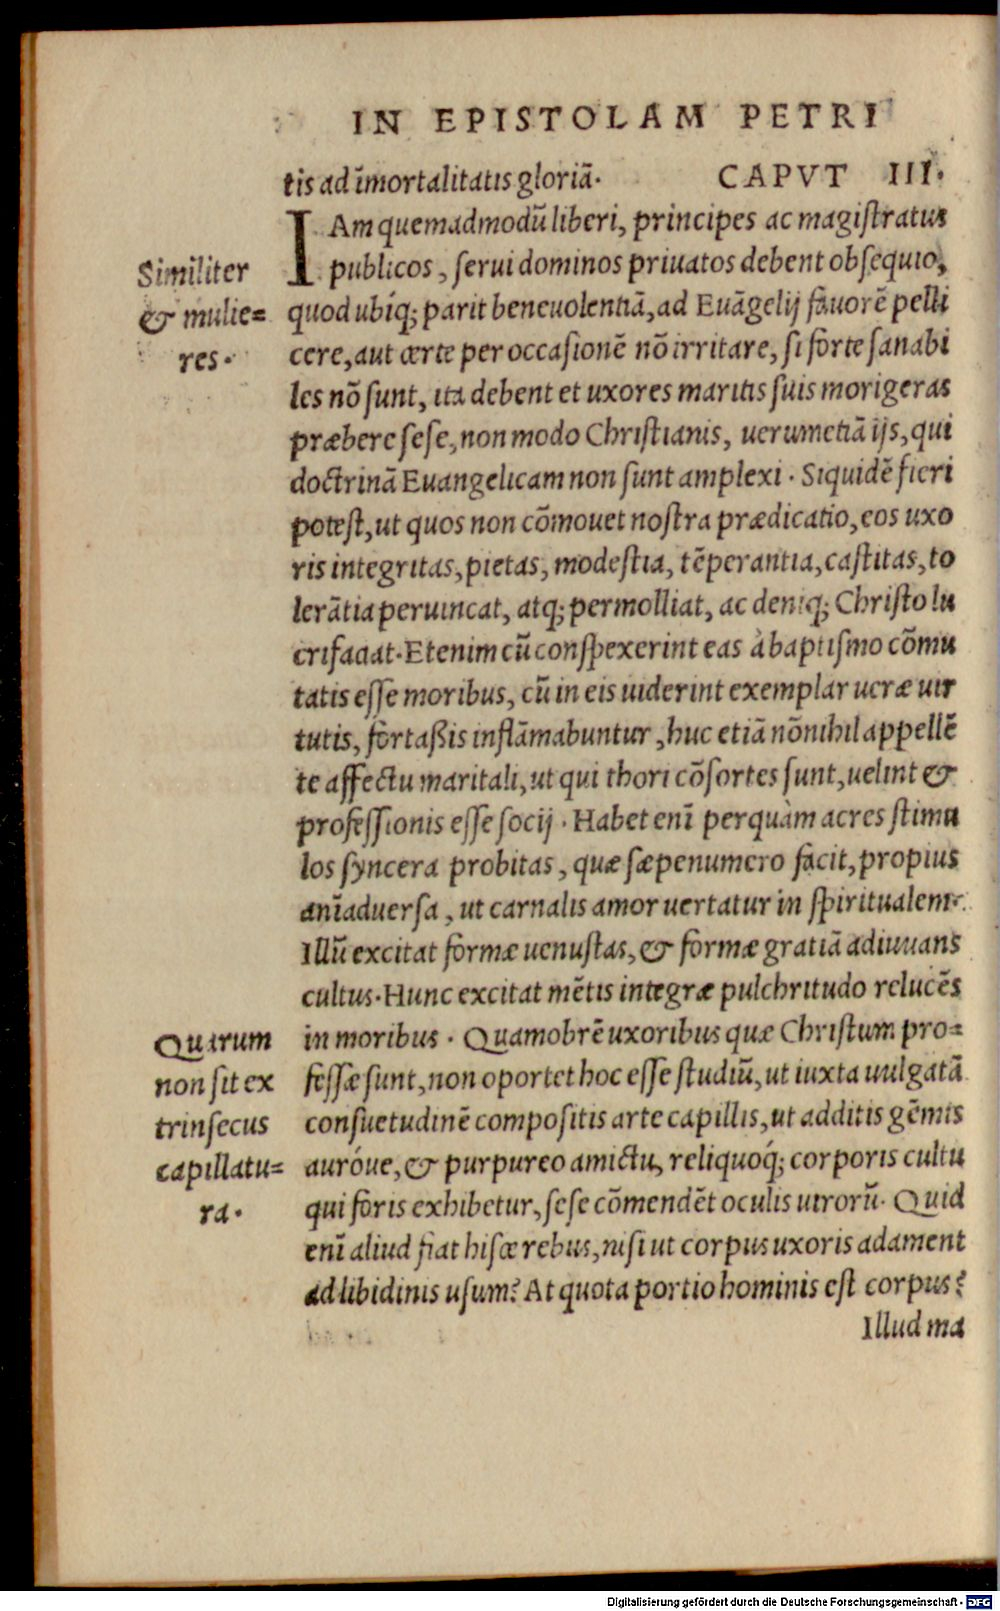 IN EPISTOLAM PETRI
tis ad im̄ortalitatis gloriā. CAPVT III.
IAm quemadmodū liberi, principes ac magistratus
publicos, serui dominos priuatos debent obsequio,
Similiter
& mulie=
res.
quod ubiq; parit beneuolentiā, ad Euāgelij fauorē pelli
cere, aut certe per occasionē nō irritare, si forte sanabi
les nō sunt, ita debent et uxores maritis suis morigeras
præbere sese, non modo Christianis, uerumetiā ijs, qui
doctrinā Euangelicam non sunt amplexi. Siquidē fieri
potest, ut quos non cōmouet nostra prædicatio, eos uxo
ris integritas, pietas, modestia, tēperantia, castitas, to
lerātia peruincat, atq; permolliat, ac deniq; Christo lu
crifaciat. Etenim cū conspexerint eas à baptismo cōmu
tatis esse moribus, cū in eis uiderint exemplar ueræ uir
tutis, fortaßis inflāmabuntur, huc etiā nōnihil appellē
te affectu maritali, ut qui thori cōsortes sunt, uelint &
professionis esse socij. Habet enī perquàm acres stimu
los syncera probitas, quæ sæpenumero facit, propius
anīaduersa, ut carnalis amor uertatur in spiritualem.
Illū excitat formæ uenustas, & formæ gratiā adiuuans
cultus. Hunc excitat mētis integræ pulchritudo relucēs
in moribus. Quamobrē uxoribus quæ Christum pro=
fessæ sunt, non oportet hoc esse studiū, ut iuxta uulgatā
consuetudinē compositis arte capillis, ut additis gēmis
auróue, & purpureo amictu, reliquoq́; corporis cultu
qui foris exhibetur, sese cōmendēt oculis uirorū. Quid
Quarum
non sit ex
trinsecus
capillatu=
ra.
enī aliud fiat hisce rebus, nisi ut corpus uxoris adament
ad libidinis usum? At quota portio hominis est corpus?
Illud ma
Digitalisierung gefördert durch die Deutsche Forschungsgemeinschaft - DFG